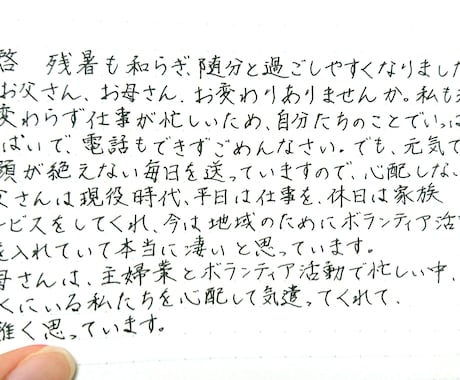 啓 残暑も和らぎ、随分と過ごしやすくなりました
お父さん、お母さん、お変わりありませんか。私も
変わらず仕事が忙しいため、自分たちのことでいっ
ぱいで、電話もできずごめんなさい。でも、元気で
顔が絶えない毎日を送っていますので、心配しな
父さんは現役時代、平日は仕事を、休日は家族
ービスをしてくれ、今は地域のためにボランティア活
を入れていて本当に凄いと思っています。
母さんは、主婦業とボランティア活動で忙しい中、
くにいる私たちを心配して気遣ってくれて、
難く思っています。